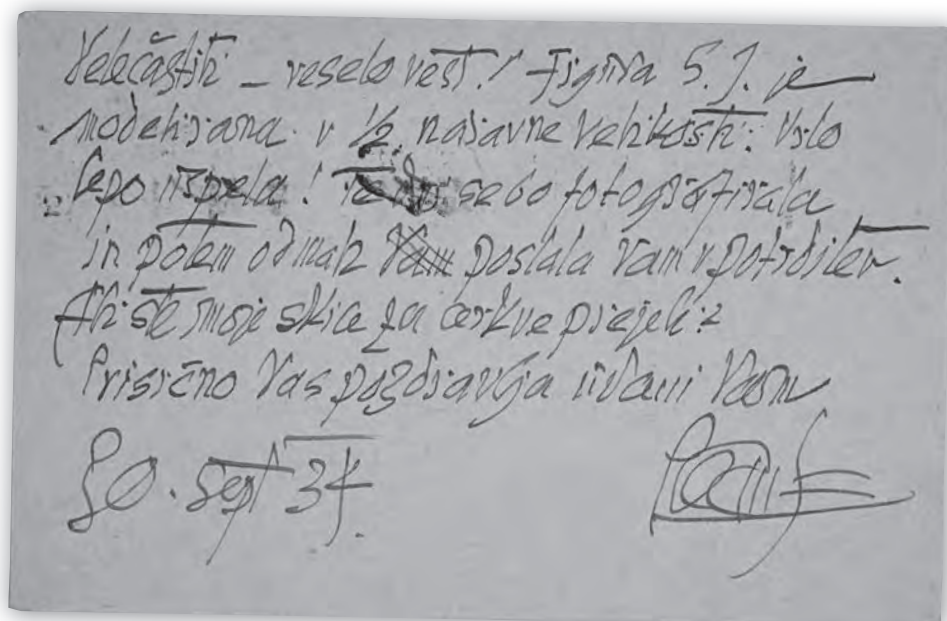 Velečastiti – vesela vest! Figura S. J. je
modelirana v 1/2 naravne velikosti. Zelo
lepo uspela! se bo fotografirala
in potem odmah Vam poslala Vam v potrditev.
Ali ste moje skice za cerkve prejeli?
Prisrčno Vas pozdravlja udani Vam
sept 34.